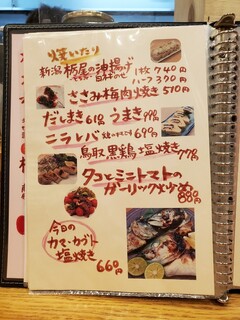 焼いたり
新潟 栃尾の油揚げ 1枚740円
ハーフ300円
ささみ梅肉焼き 510円
だしまき 610円 うまき 990円
ニラレバ 690円
鳥取 黒鶏塩焼き 770円
タコとミニトマトの
ガーリック炒め
880円
今日の
カマ・カブト
塩焼き
660円